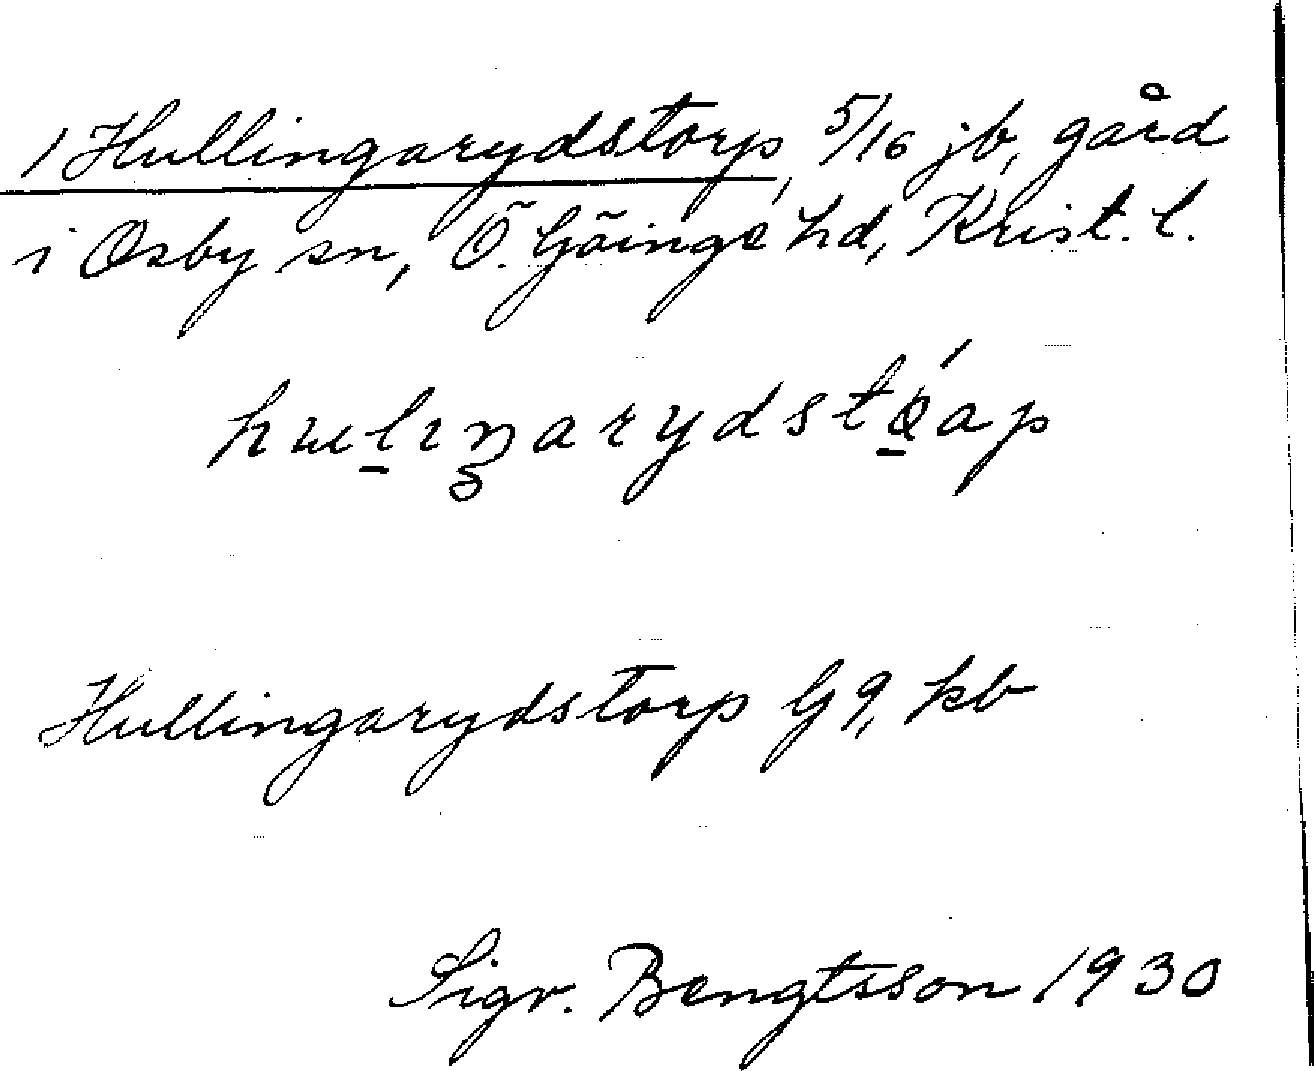 1 Hullingarydstorp, 5/16 jb, gård
i Osby sn, Ö. Göinge hd, Krist. l.
Hullingarydstorp G 9, kb
Sigv. Bengtsson 1930